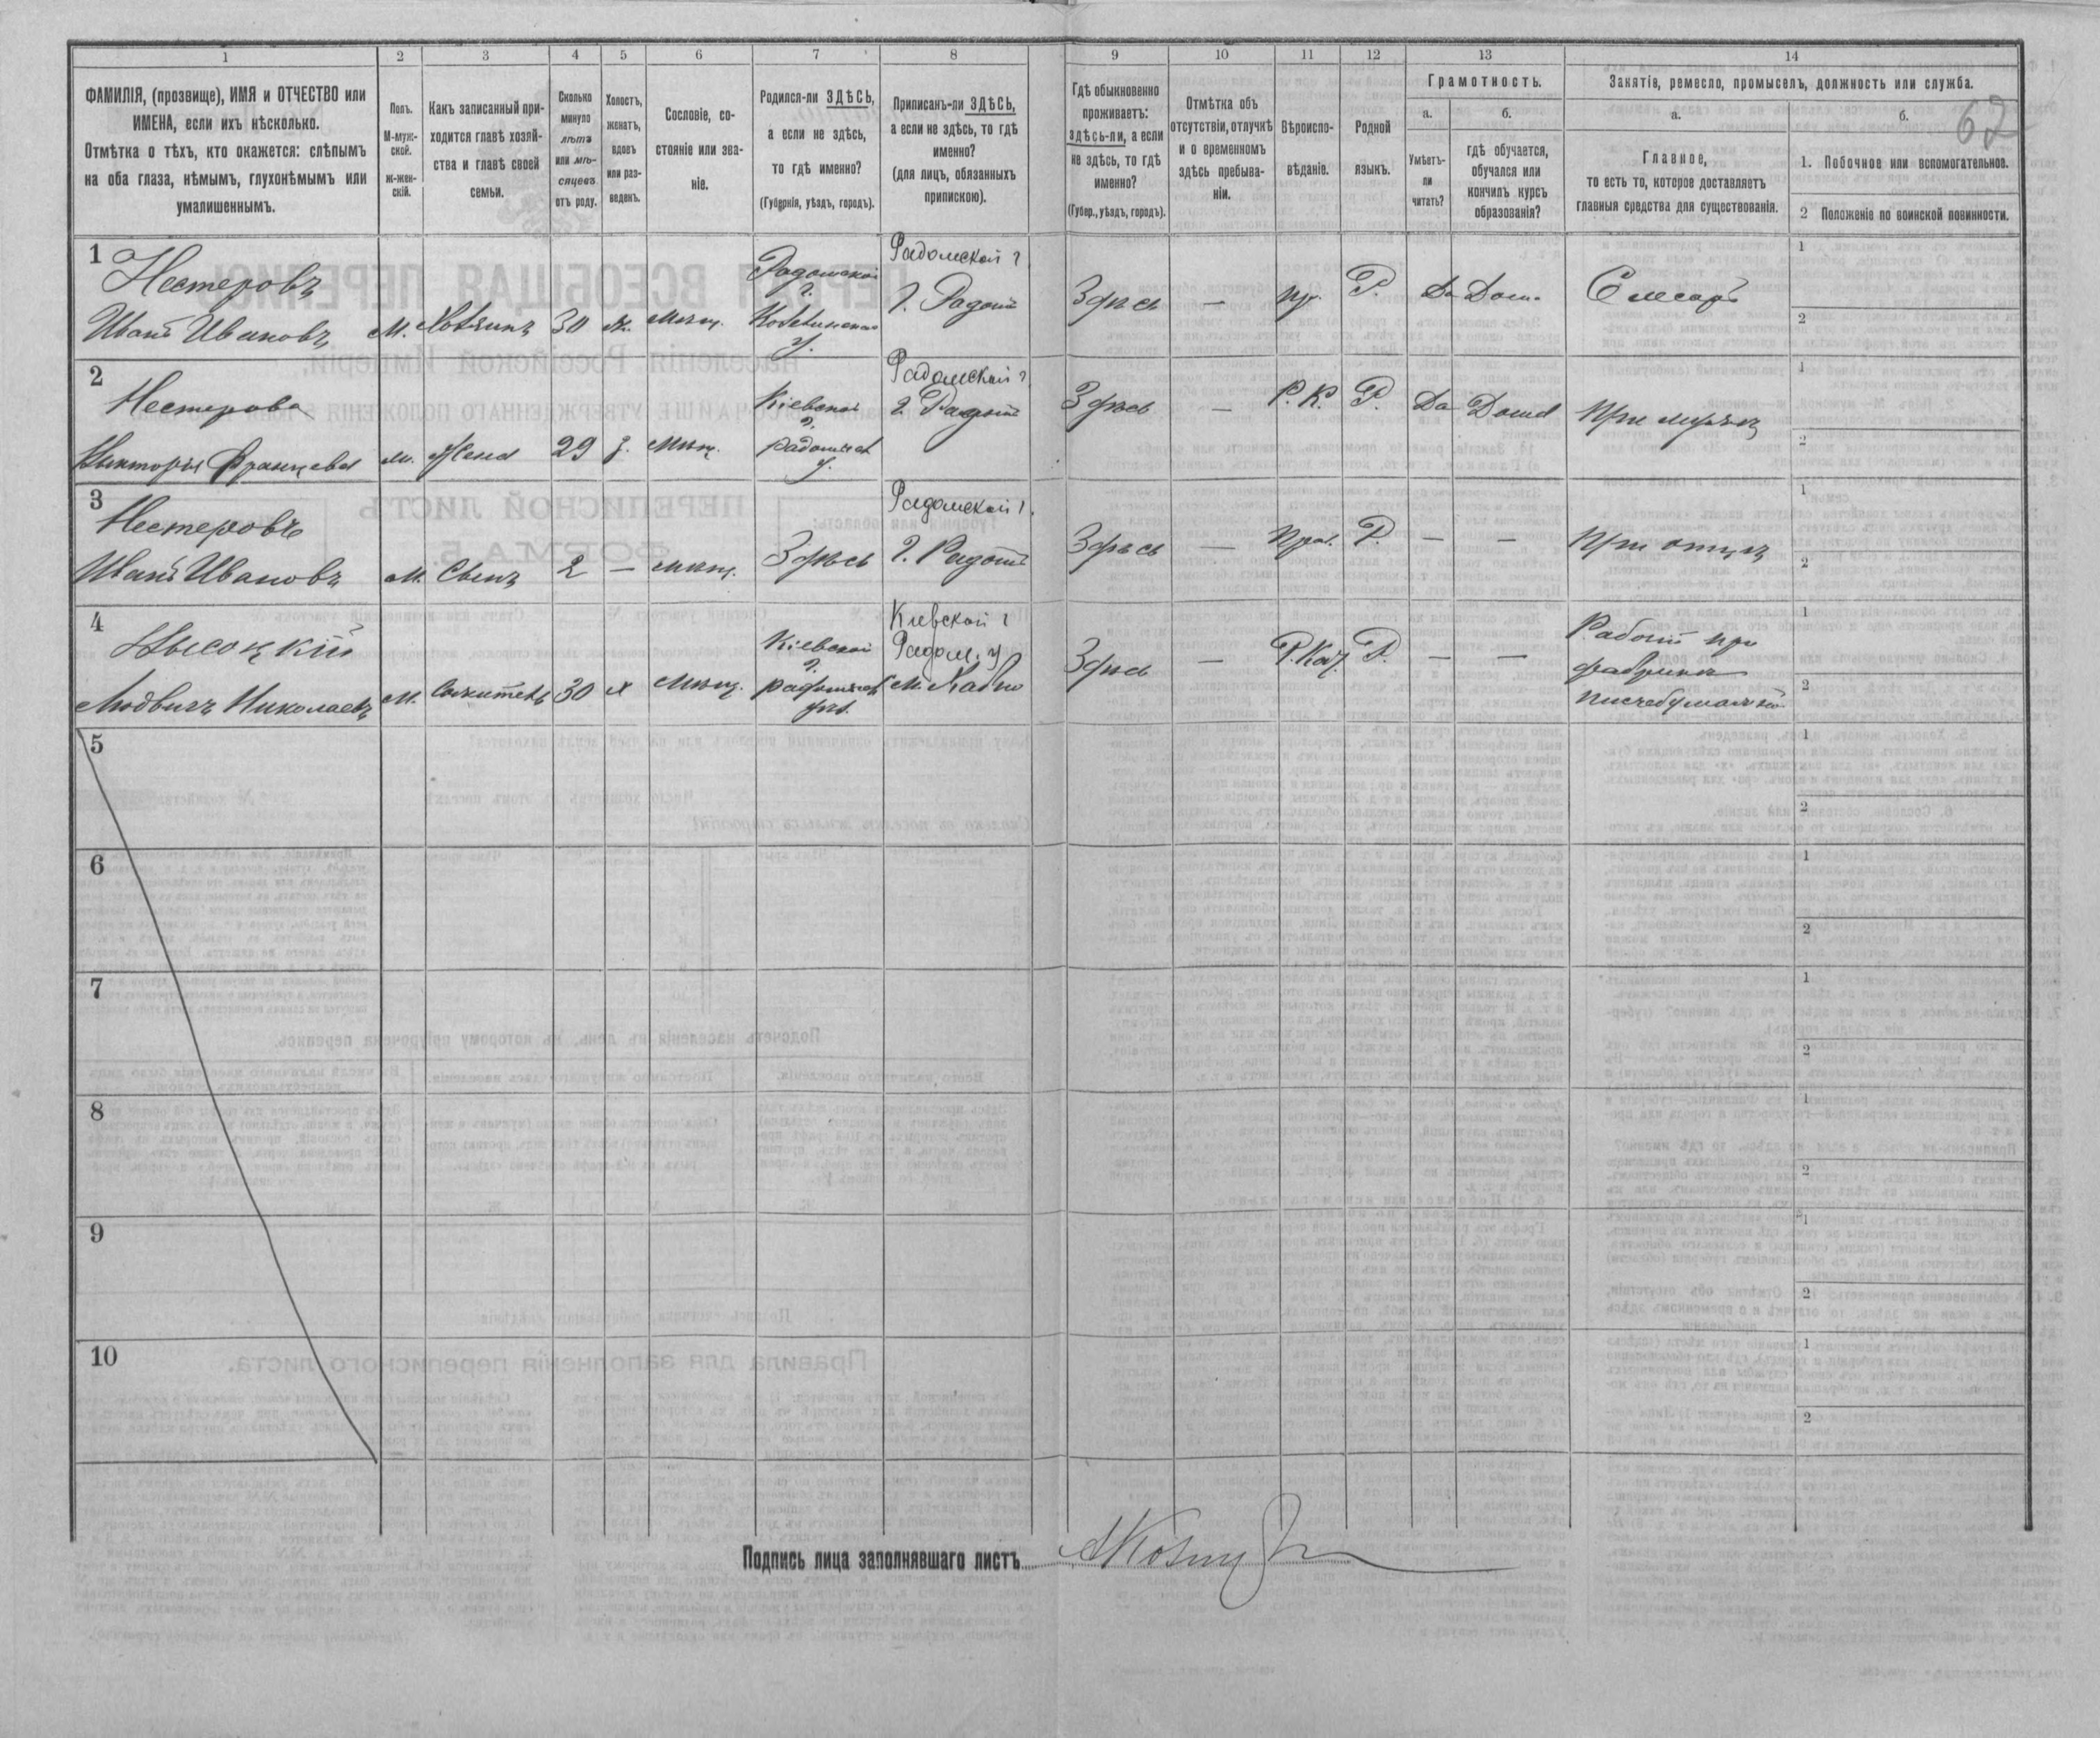 1 2 3 4 5 6 7 8 9 10 11 12 13 14
ФАМИЛІЯ, (прозвище), ИМЯ и ОТЧЕСТВО или
ИМЕНА, если ихъ нѣсколько.
Отмѣтка о тѣхъ, кто окажется: слѣпымъ
на оба глаза, нѣмымъ, глухонѣмымъ или
умалишеннымъ.
Полъ.
М-муж-
ской.
ж-жен-
скій.
Какъ записанный при-
ходится главѣ хозяй-
ства и главѣ своей
семьи.
Сколько
минуло
лѣтъ
или мѣ-
сяцевъ
отъ роду.
Холостъ,
женатъ,
вдовъ
или раз-
веденъ.
Сословіе, со-
стояніе или зва-
ніе.
Родился-ли ЗДѢСЬ,
а если не здѣсь,
то гдѣ именно?
(Губернія, уѣздъ, городъ).
Приписанъ-ли ЗДѢСЬ,
а если не здѣсь, то гдѣ
именно?
(для лицъ, обязанныхъ
припискою).
Гдѣ обыкновенно
проживаетъ:
здѣсь-ли, а если
не здѣсь, то гдѣ
именно?
(Губер., уѣздъ, городъ).
Отмѣтка объ
отсутствіи, отлучкѣ
и о временномъ
здѣсь пребыва-
ніи.
Вѣроиспо-
вѣданіе.
Родной
языкъ.
Грамотность.
а.
Умѣетъ-
ли
читать?
б.
гдѣ обучается,
обучался или
кончилъ курсъ
образованія?
Занятіе, ремесло, промыселъ, должность или служба.
а.
Главное,
то есть то, которое доставляетъ
главныя средства для существованія.
б.
62
1. Побочное или вспомогательное.
2 Положеніе по воинской повинности.
1
Нестеровъ
Иванъ Ивановъ
М.
Хозяинъ
30
ж.
мѣщ.
Радомской
г.
у.
Радомской г
г. Радомъ
Здѣсь
—
пр.
Р.
Да
Дома
Слесарь
1
2
2
Нестерова
Викторія Францева
ж.
Жена
29
з.
мѣщ.
Кіевской
г.
радомысл
у.
Радомской г
г. Радомъ
Здѣсь
—
Р. К.
Р.
Да
Дома
При мужѣ
1
2
3
Нестеровъ
Иванъ Ивановъ
М.
Сынъ
2
—
мѣщ.
Здѣсь
Радомской г.
г. Радомъ
Здѣсь
—
Прав.
Р.
—
—
При отцѣ
1
2
4
Высоцкій
Людвигъ Николаевъ
М.
Сожитель
30
х
мѣщ.
Кіевской
г.
радомысл
Кіевской г
Радом. у
м.
Здѣсь
—
Р. Кат.
Р.
—
—
Рабочій при
фабрикѣ
писчебумажной
1
2
5
1
2
6
1
2
7
1
2
8
1
2
9
1
2
10
1
2
Подпись лица заполнявшаго листъ